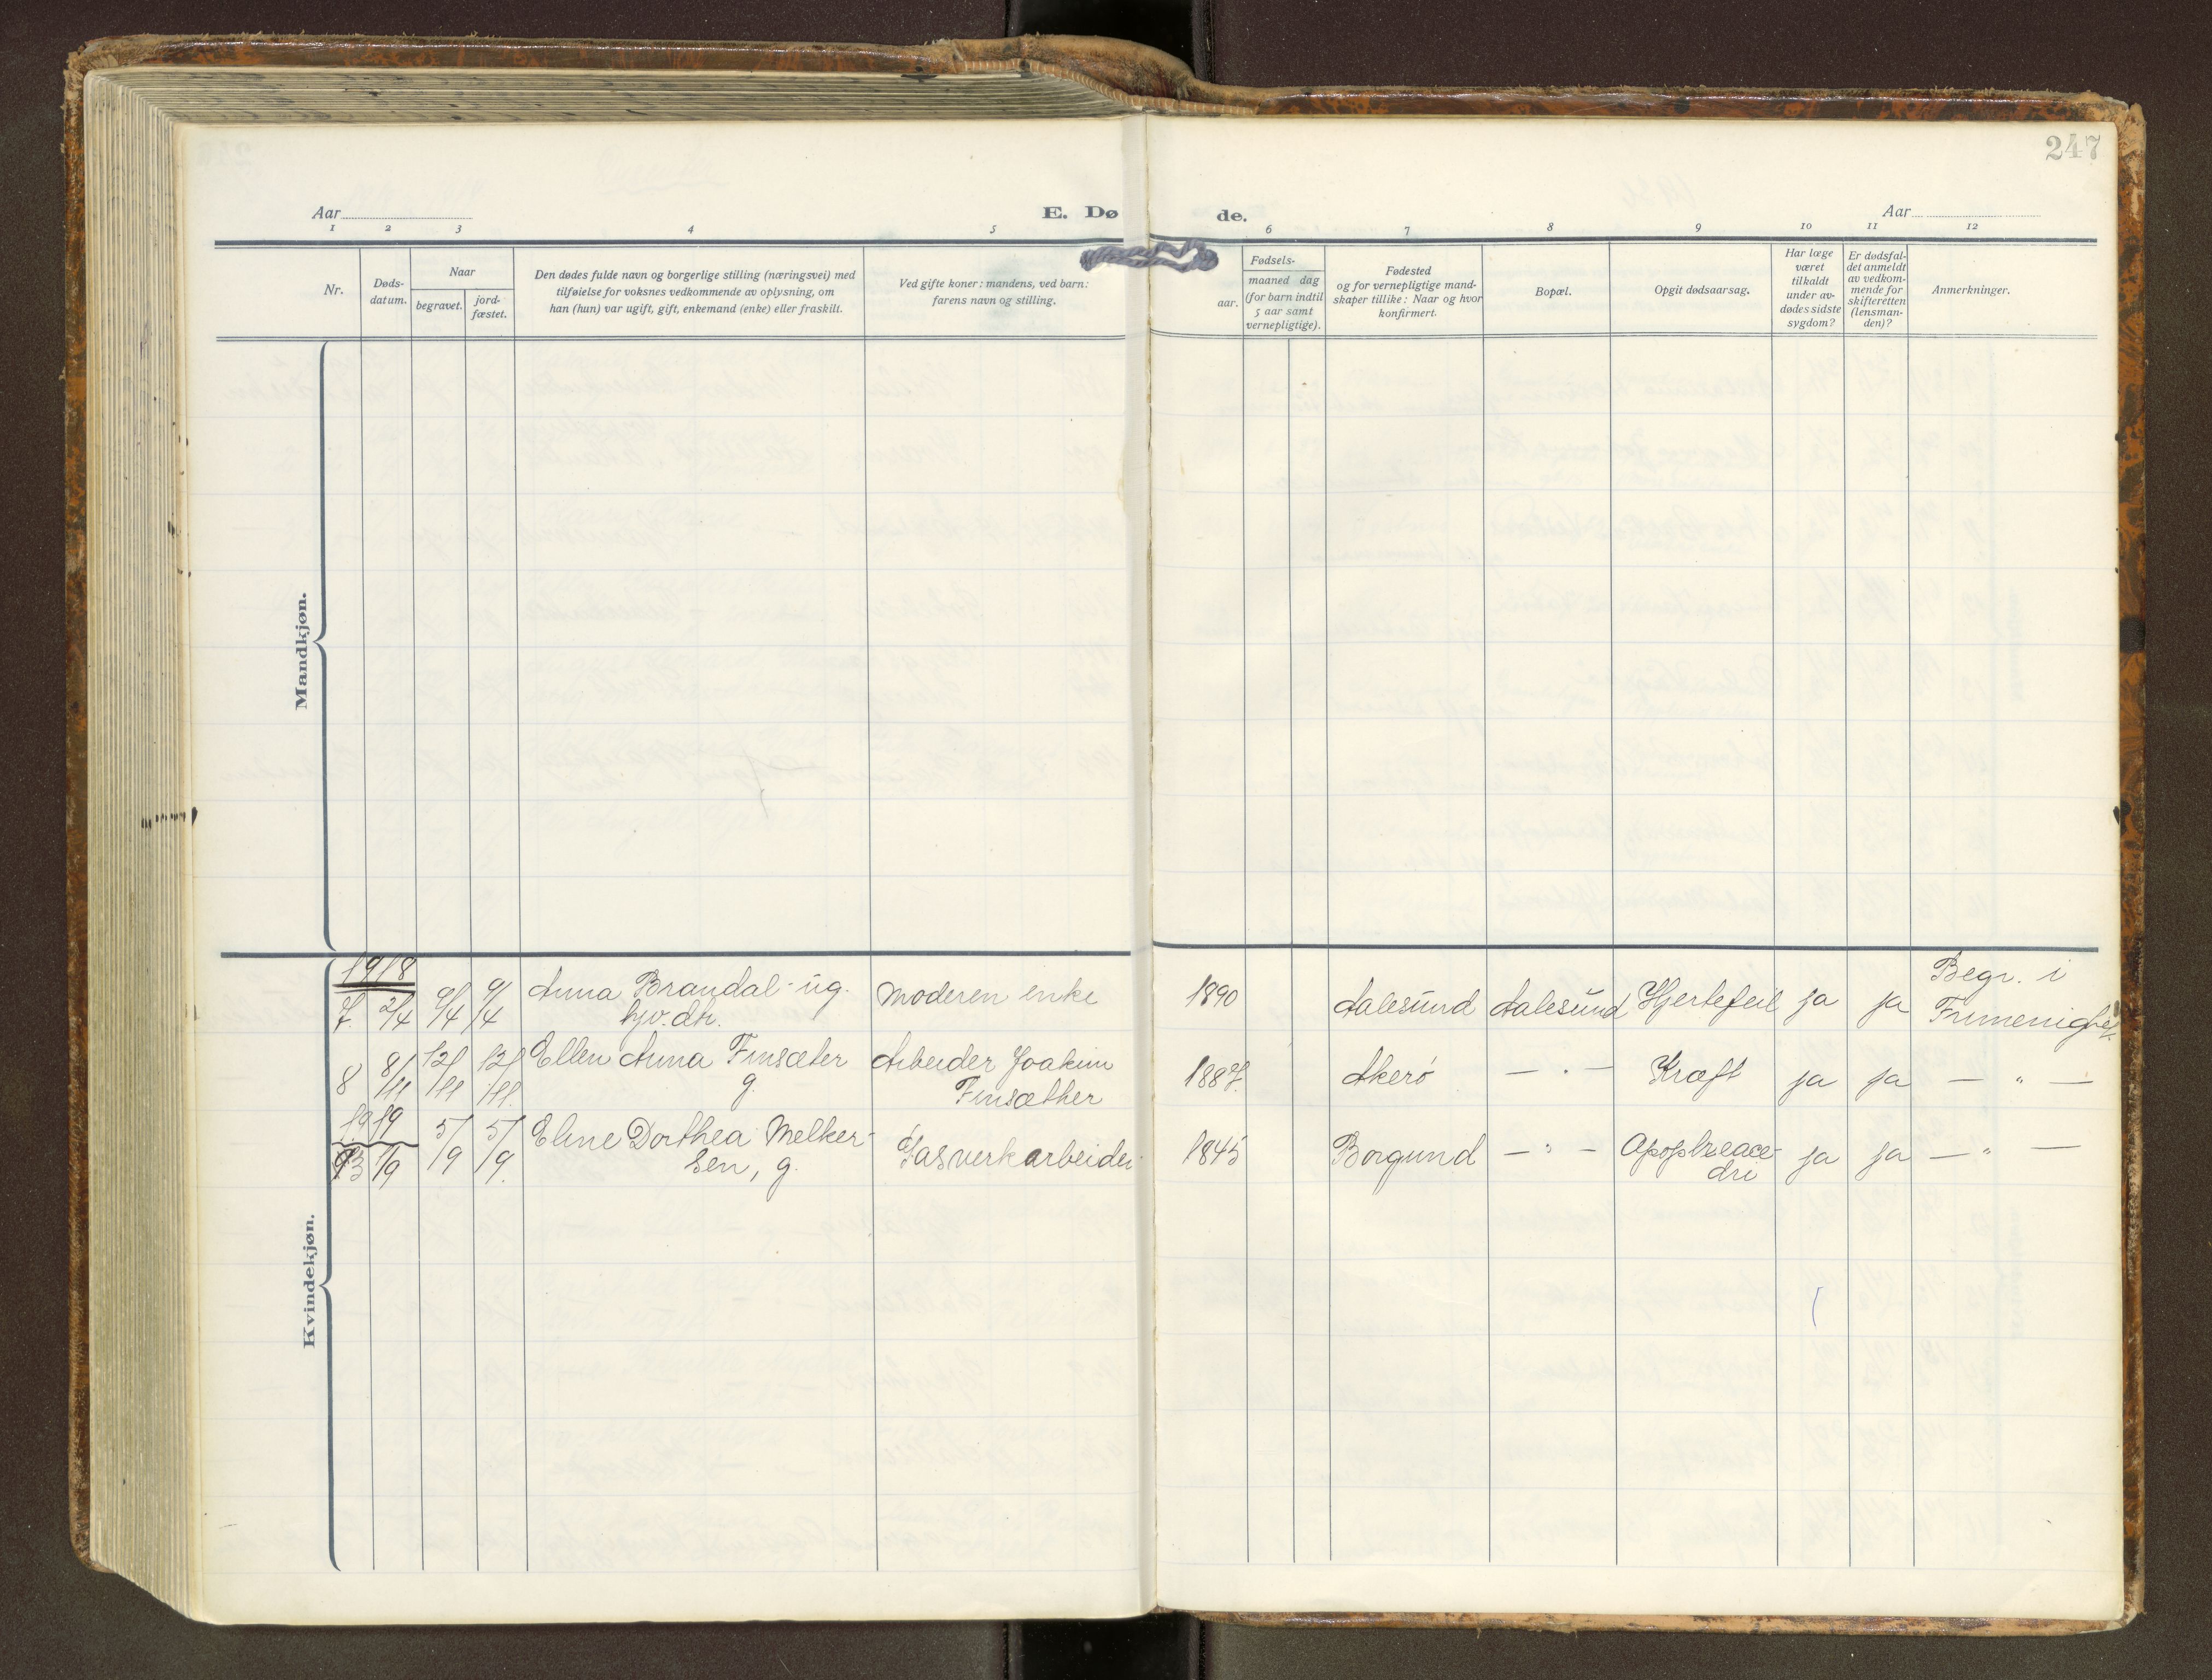 247
Aar
E. Dø
de.
Aar
1 2 3 4 5 6 7 8 9 10 11 12
Nr.
Døds-
datum.
Naar
begravet.
jord-
fæstet.
Den dødes fulde navn og borgerlige stilling (næringsvei) med
tilføielse for voksnes vedkommende av oplysning, om
han (hun) var ugift, gift, enkemand (enke) eller fraskilt.
Ved gifte koner: mandens, ved barn:
farens navn og stilling.
Fødsels-
aar.
maaned dag
(for barn indtil
5 aar samt
vernepligtige).
Fødested
og for vernepligtige mand-
skaper tillike: Naar og hvor
konfirmert.
Bopæl.
Opgit dødsaarsag.
Har læge
været
tilkaldt
under av-
dødes sidste
sygdom?
Er dødsfal-
det anmeldt
av vedkom-
mende for
skifteretten
(lensman-
den)?
Anmerkninger.
Mandkjøn.
Kvindekjøn.
1918
7. 2/4 9/4 9/4 Anna Brandal - ug. Moderen enke 1890 Aalesund Aalesund Hjertefeil ja ja Begr. i
hjv. dtr. Frimenighet.
8 8/11 12/11 12/11. Ellen Anna Finsæter Arbeider Joakim 1887. Akerø — " — Kræft ja ja — " —
g. Finsæther
1919
93 1/9 5/9 5/9. Eline Dorthea Melker- Gasverkarbeider 1845 Borgund — " — ja ja — " —
sen, g.